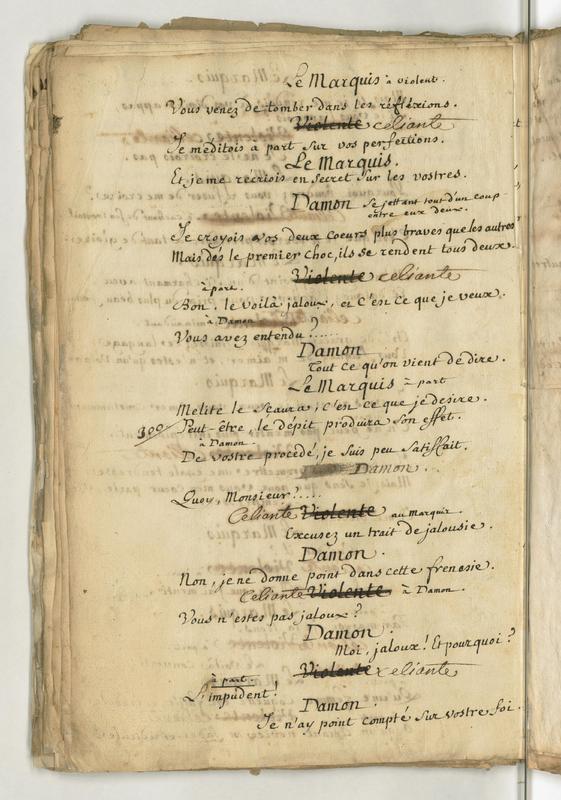 Le Marquis à violent.
Vous venez de tomber dans les réfléxions.
Violente celiante
Je méditois a part sur vos perfections.
Le Marquis.
Et je me recriois en secret sur les vostres.
Damon se jettant tout d'un coup
entre eux deux.
Je croyois vos deux coeurs plus braves que les autres
Mais dés le premier choc, ils se rendent tous deux.
Violente celiante
à part.
Bon. le voilà jaloux, et c'en ce que je veux.
à Damon
Vous avez entendu?......
Damon
Tout ce qu'on vient de dire.
Le Marquis à part
Melite le sçaura; c'en ce que je desire.
300 Peut-être, le dépit produira son effet.
à Damon.
De vostre procedé, je suis peu satisfait.
Damon.
Quoy, Monsieur?.....
Celiante Violente au Marquis.
Excusez un trait de jalousie.
Damon.
Non, je ne donne point dans cette frenesie.
Celiante Violente à Damon.
Vous n'estes pas jaloux?
Damon.
Moi, jaloux! Et pourquoi?
Violente celiante
à part.
L'impudent!
Damon.
Je n'ay point compté sur vostre foi.